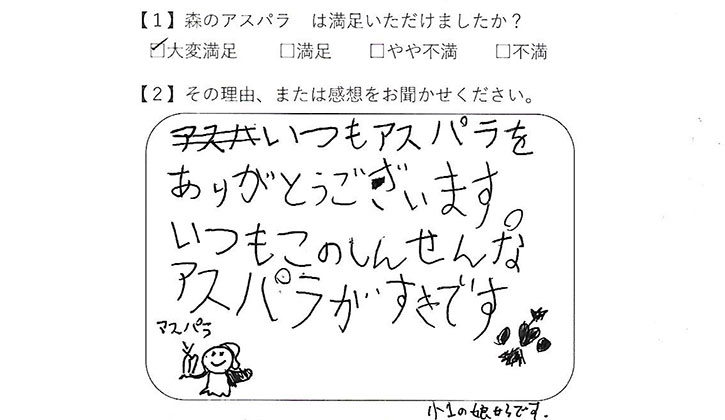 【1】森のアスパラ　は満足いただけましたか？
☑大変満足　□満足　□やや不満　□不満
【2】その理由、または感想をお聞かせください。
アスパいつもアスパラを
ありがとうございます。
いつもこのしんせんな
アスパラがすきです
アスパラ
小1の娘からです.